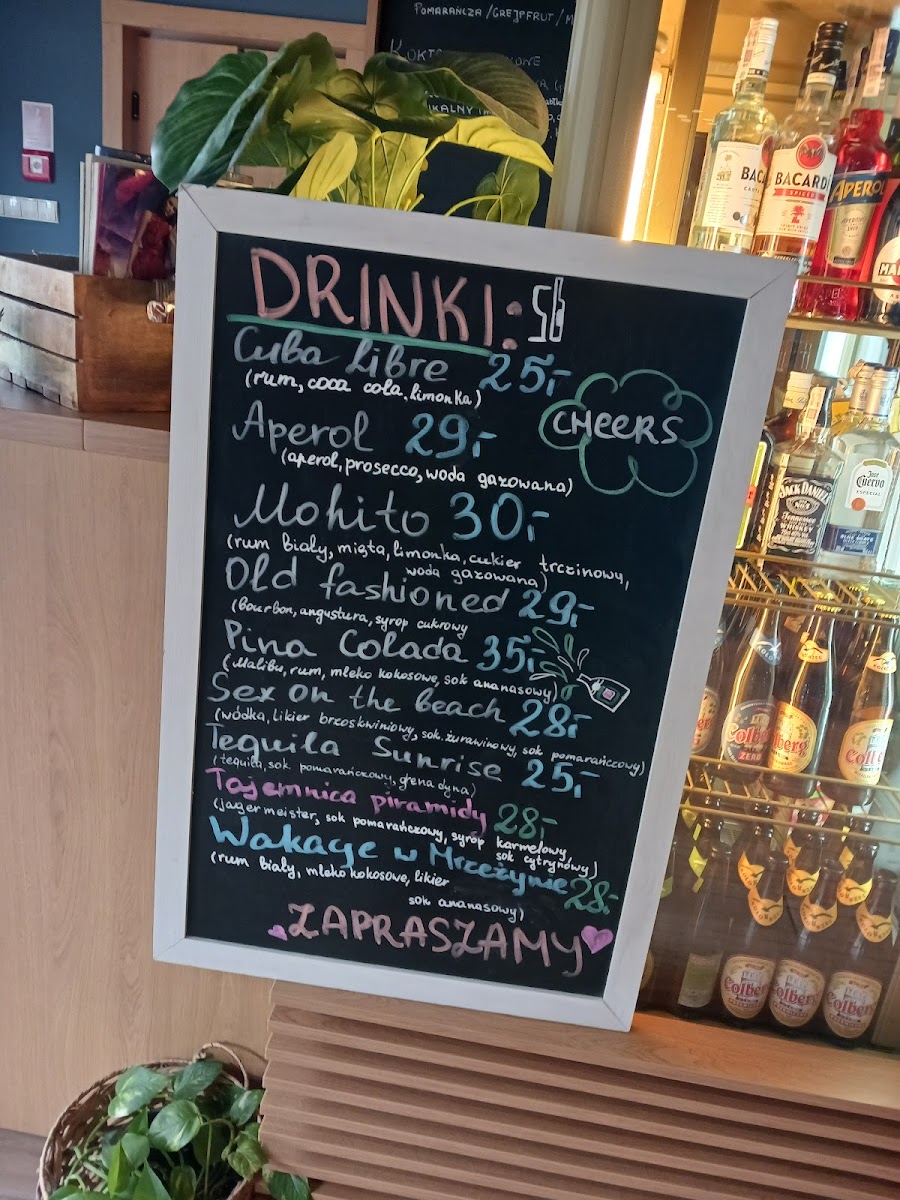 POMARAŃCZA / GREJPFRUT / M
DRINKI:
Cuba Libre 25,-
(rum, coca cola, limonka)
CHEERS
Aperol 29,-
(aperol, prosecco, woda gazowana)
Mohito 30,-
(rum biały, mięta, limonka, cukier trzcinowy,
woda gazowana)
Old fashioned 29,-
(bourbon, angustura, syrop cukrowy
Pina Colada 35,-
(Malibu, rum, mleko kokosowe, sok ananasowy)
Sex on the beach 28,-
(wódka, likier brzoskwiniowy, sok żurawinowy, sok pomarańczowy)
Tequila Sunrise 25,-
(tequila, sok pomarańczowy, grenadyna)
Tajemnica piramidy 28,-
(jagermeister, sok pomarańczowy, syrop karmelowy
sok cytrynowy)
Wakacje w Mrzeżynie 28,-
(rum biały, mleko kokosowe, likier
sok ananasowy)
ZAPRASZAMY
BACARDI
SPICED
APEROL
JACK DANIEL'S
Tennessee
WHISKEY
Jose
Cuervo
ESPECIAL
Colberg
Colberg
Colberg